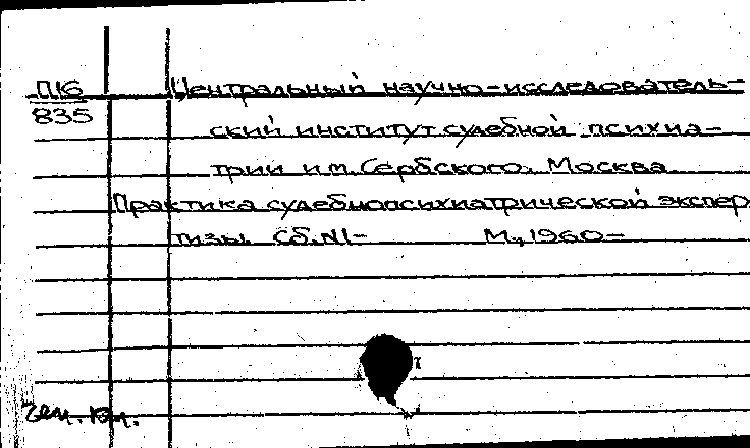 П16 Центральный научно-исследователь-
835 ский институт судебной психиа-
трии им. Сербского. Москва
Практика судебнопсихиатрической экспер
тизы. Сб. N1- М., 1960-